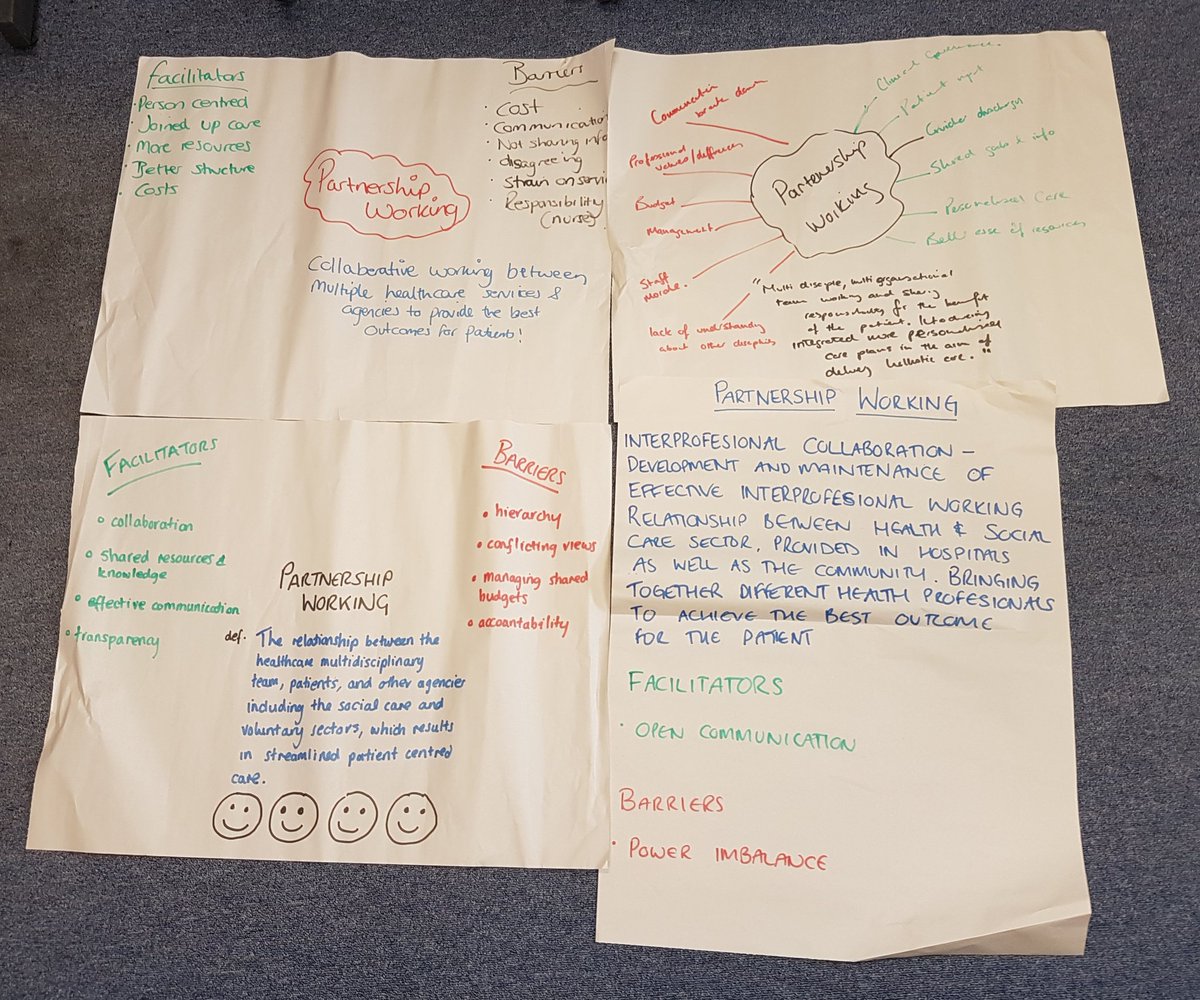 Facilitators
· Person centred
· Joined up care
· More resources
· Better structure
· Costs
Barriers
· Cost
· Communication
· Not sharing info
· disagreeing
· Strain on servi
· Responsibility
(nurse)
Partnership
Working
Collaborative working between
Multiple healthcare services &
agencies to provide the best
Outcomes for patients!
Communication
break down
Professional
values/differences
Budget
Management
Staff
Morale.
lack of understanding
about other
Clinical Governance.
Patient
Quicker discharge
Shared goals & info
Personalised Care
use of resources
Partnership
Working
"Multi multi organisational
team working and sharing
responsibilities for the benefit
of the patient.
integrated more personalised
care plans in the aim of
delivery care."
FACILITATORS
o collaboration
o shared resources &
knowledge
o effective communication
o transparency
BARRIERS
• hierarchy
• conflicting views
• managing shared
budgets
• accountability
PARTNERSHIP
WORKING
def. The relationship between the
healthcare multidisciplinary
team, patients, and other agencies
including the social care and
voluntary sectors, which results
in streamlined patient centred
care.
PARTNERSHIP WORKING
INTERPROFESIONAL COLLABORATION –
DEVELOPMENT AND MAINTENANCE OF
EFFECTIVE INTERPROFESIONAL WORKING
RELATIONSHIP BETWEEN HEALTH & SOCIAL
CARE SECTOR. PROVIDED IN HOSPITALS
AS WELL AS THE COMMUNITY. BRINGING
TOGETHER DIFFERENT HEALTH PROFESIONALS
TO ACHIEVE THE BEST OUTCOME
FOR THE PATIENT
FACILITATORS
· OPEN COMMUNICATION
BARRIERS
· POWER IMBALANCE